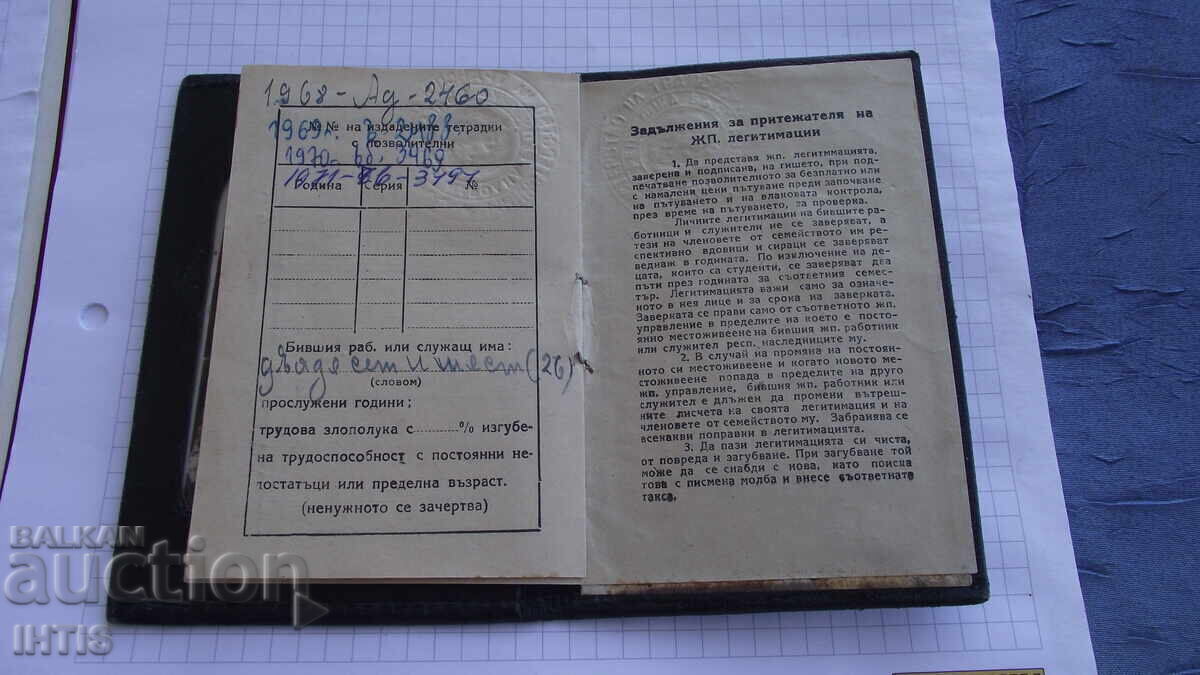 1968 - Ад - 2460
1969г.
№ № на издадените тетрадки
с позволителни
1970 - 3469
1971
Година серия №
Бившия раб. или служащ има:
двадесет и шест (26)
(словом)
прослужени години;
трудова злополука с..........% изгубе-
на трудоспособност с постоянни не-
достатъци или пределна възраст.
(ненужното се зачертва)
Задължения за притежателя на
ЖП. легитимации
1. Да представя жп. легитимацията,
заверена и подписана, на гишето, при под-
печатване позволителното за безплатно или
с намалени цени пътуване преди започване
на пътуването и на влаковата контрола,
през време на пътуването, за проверка.
Личните легитимации на бившите ра-
ботници и служители не се заверяват, а
тези на членовете от семейството им ре-
спективно вдовици и сираци се заверяват
веднаж в годината. По изключение на де-
цата, които са студенти, се заверяват два
пъти през годината за съответния семес-
тър. Легитимацията важи само за означе-
ното в нея лице и за срока на заверката.
Заверката се прави само от съответното жп.
управление в пределите на което е посто-
янно местоживеене на бившия жп. работник
или служител респ. наследниците му.
2. В случай на промяна на постоян-
ното си местоживеене и когато новото ме-
стоживеене попада в пределите на друго
жп. управление, бившия жп. работник или
служител е длъжен да промени вътреш-
ните листчета на своята легитимация и на
членовете от семейството му. Забранява се
всенакви поправки в легитимацията.
3. Да пази легитимацията си чиста,
от повреда и загубване. При загубване той
може да се снабди с нова, като поиска
това с писмена молба и внесе съответната
такса.
BALKAN
auction
IHTIS